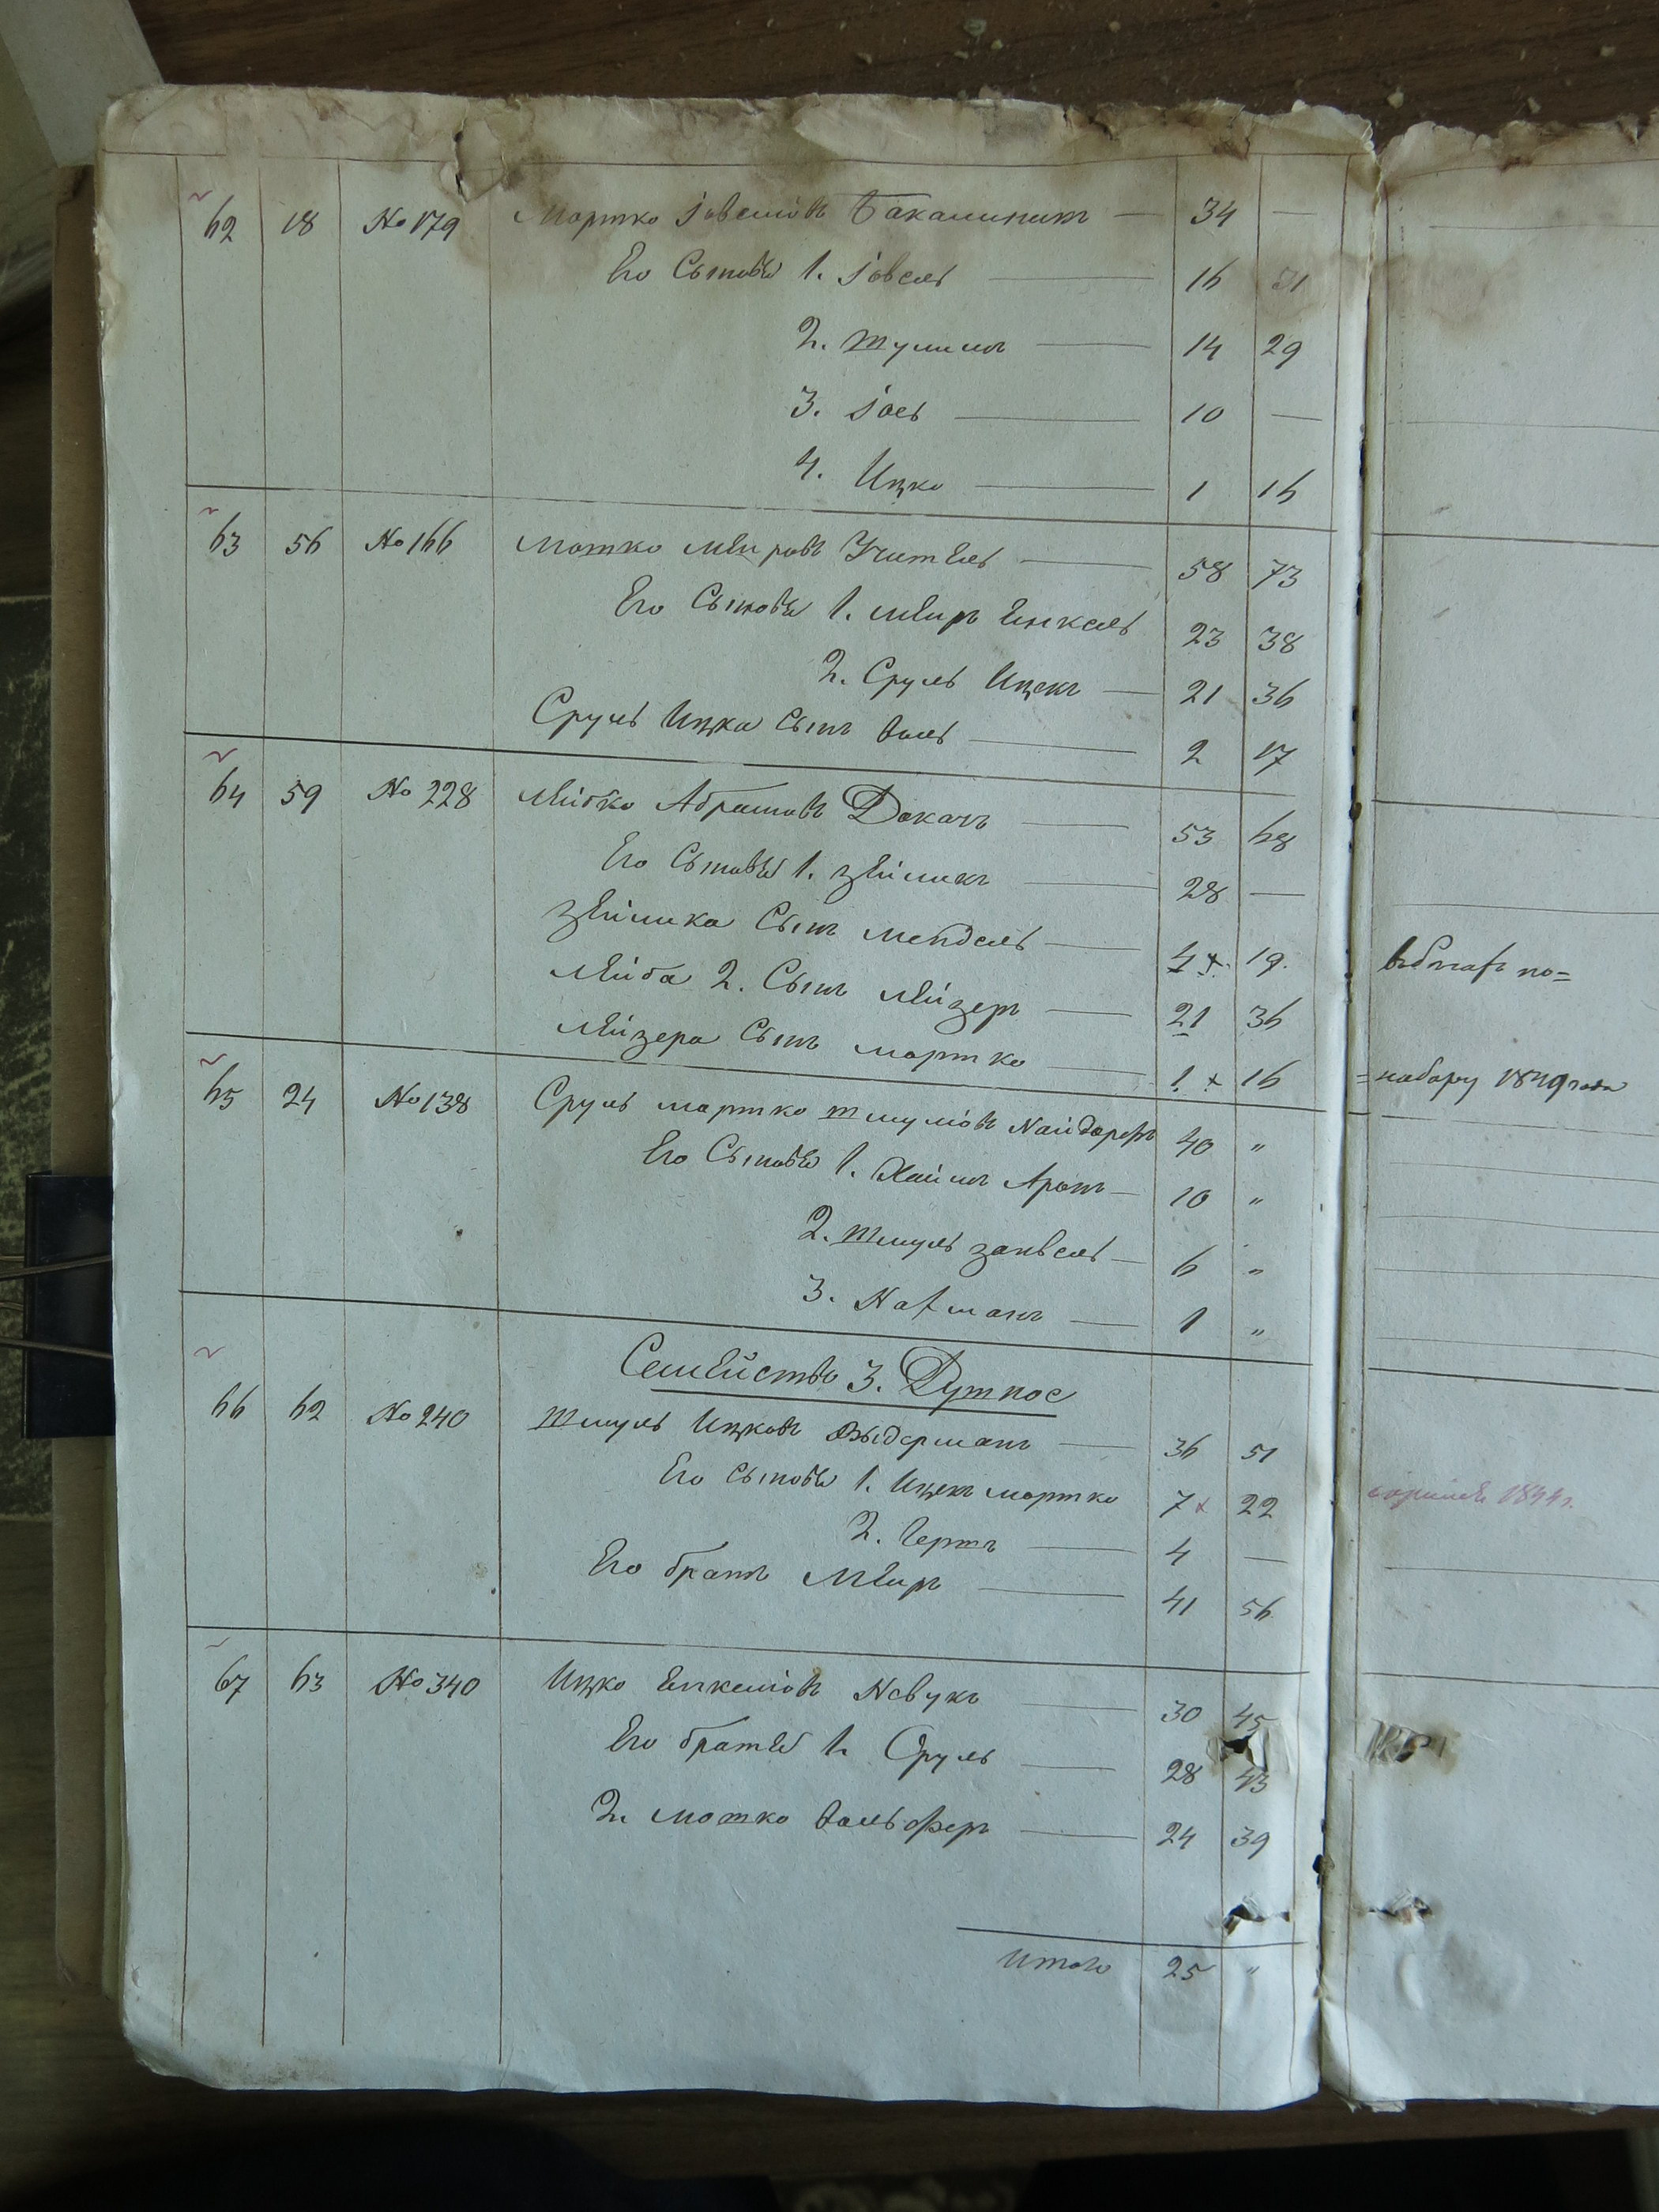 62 18 №179 Мортко Іовелiовъ Бакалинитъ — 34 —
Его Сыновья 1. Іовель — 16 31
2. Шулимъ — 14 29
3. Іось — 10 —
4. Ицко — 1 16
63 56 №166 Мошко Меировъ Учитель — 58 73
Его Сыновья 1. Меиръ Енкель 23 38
2. Сруль Ицекъ — 21 36
Сруль Ицка Сынъ — 2 17
64 59 №228 Лейбко Абрамовъ — 53 68
Его Сыновья 1. Зейликъ — 28 —
Зейлика Сынъ Мендель — 4 х. 19.
Лейба 2. Сынъ Лейзеръ — 21 36
Лейзера Сынъ Мортко — 1 х 16
по=
=набору 1849 года
65 24 №138 Сруль Мортко Шмулiовъ 40 "
Его Сыновья 1. Хаимъ Аронъ — 10 "
2. Шмуль Занвель — 6 "
3. Нахманъ — 1 "
Семейство 3.
66 62 №240 Шмуль Ицковъ Выдерманъ — 36 51
Его Сыновья 1. Ицекъ Мортко 7 х 22
1844г.
2. Гершъ — 4 —
Его братъ Меиръ — 41 56
67 63 №340 Ицко Енкелiовъ — 30 45
Его братья 1. Сруль — 28 43
2. Мошко — 24 39
Итого 25 "